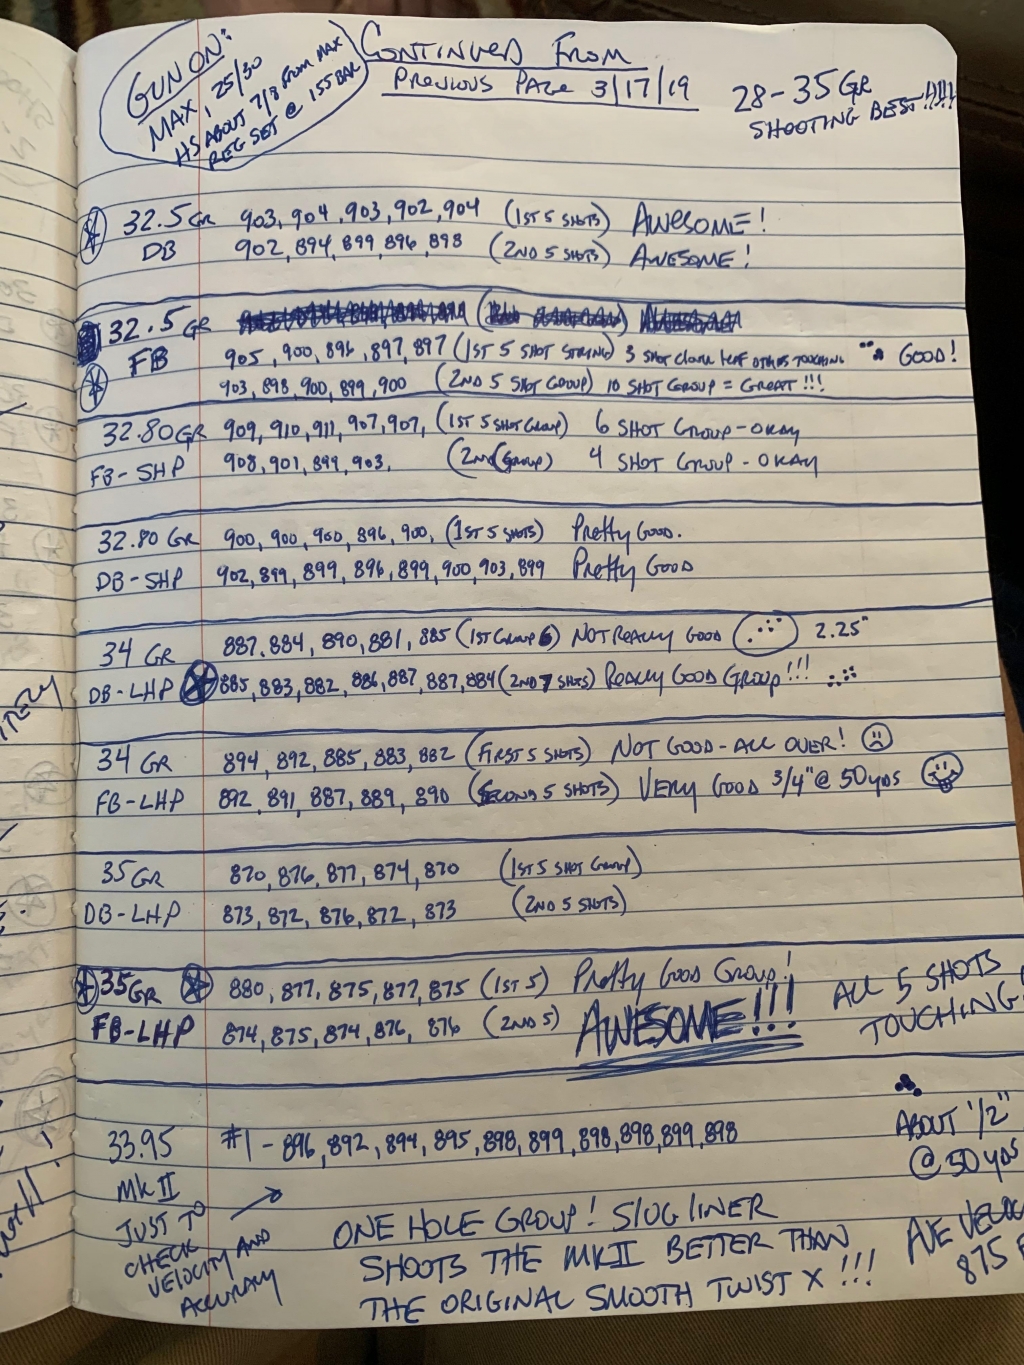 GUN ON:
MAX, 25/30
HS ABOUT 7/8 FROM MAX
REG SET @ 155 BAR
CONTINUED FROM
PREVIOUS PAGE 3/17/19
28-35GR
SHOOTING BEST!!!!!
32.5GR 903, 904, 903, 902, 904 (1ST 5 SHOTS) AWESOME!
DB 902, 894, 899, 896, 898 (2ND 5 SHOTS) AWESOME!
32.5 GR
FB 905, 900, 896, 897, 897 (1ST 5 SHOT STRING) 3 SHOT CLOVER LEAF OTHERS TOUCHING GOOD!
903, 898, 900, 899, 900 (2ND 5 SHOT GROUP) 10 SHOT GROUP = GREAT!!!
32.80GR 909, 910, 911, 907, 907, (1ST 5 SHOT GROUP) 6 SHOT GROUP-OKAY
FB-SHP 908, 901, 899, 903, (2ND GROUP) 4 SHOT GROUP-OKAY
32.80 GR 900, 900, 900, 896, 900, (1ST 5 SHOTS) Pretty Good.
DB-SHP 902, 899, 899, 896, 899, 900, 903, 899 Pretty Good
34 GR 887, 884, 890, 881, 885 (1ST GROUP) NOT REALLY GOOD 2.25"
DB-LHP 885, 883, 882, 886, 887, 887, 884 (2ND 7 SHOTS) REALLY GOOD GROUP!!!
34 GR 894, 892, 885, 883, 882 (FIRST 5 SHOTS) NOT GOOD-ALL OVER!
FB-LHP 892, 891, 887, 889, 890 (SECOND 5 SHOTS) VERY GOOD 3/4" @ 50yds
35GR 870, 876, 877, 874, 870 (1ST 5 SHOT GROUP)
DB-LHP 873, 872, 876, 872, 873 (2ND 5 SHOTS)
35GR 880, 877, 875, 877, 875 (1ST 5) Pretty Good Group!
FB-LHP 874, 875, 874, 876, 876 (2ND 5) AWESOME!!!
ALL 5 SHOTS
TOUCHING!
ABOUT 1/2"
@ 50yds
33.95 #1 - 896, 892, 894, 895, 898, 899, 898, 898, 899, 898
MK II
JUST TO
CHECK
VELOCITY AND
ACCURACY
ONE HOLE GROUP! SLUG LINER
SHOOTS THE MKII BETTER THAN
THE ORIGINAL SMOOTH TWIST X!!!
AVE
875